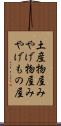 土産物屋み
やげ物屋み
やげもの屋